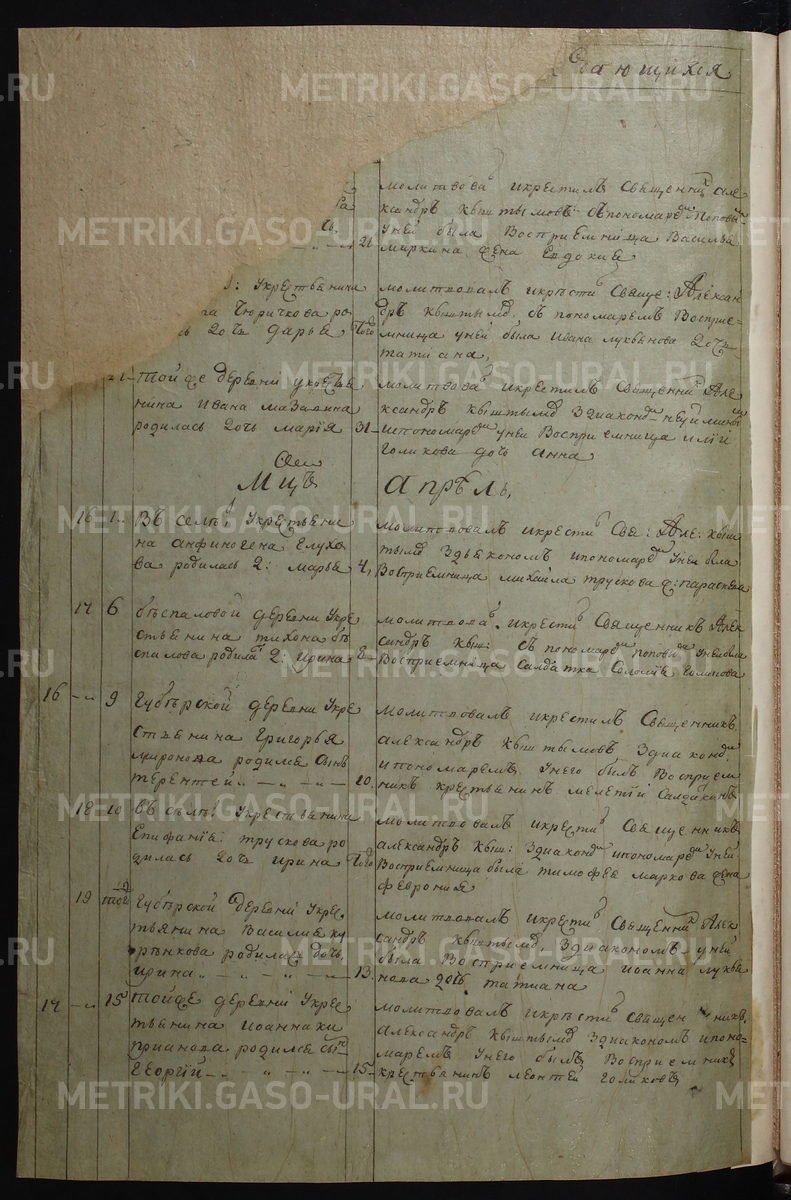 дающихся
молитвовал и крестилъ Священник Але
ксандръ Кыштымовъ съ пономарем Поповым
У ней была Восприемница Василья
21 Маркина жена Евдокия
: Укрестьянина
Чюричкова ро
дочь Дарья Того
молитвовалъ и крести Свяще: Алексан
дръ Кыштымо съ пономаремъ Восприе=
мница у ней была Ивана Лукьянова дочь
татиана,
Той же деревни укрестья
нина Ивана
родилась дочь Мария 31
молитвова и крестилъ Священни Але
ксандръ Кыштымо з диакон
и пономаре у ней Восприемница
Голикова дочь Анна
Мцъ Апрѣль,
16 1 Въ селѣ Укрестьяни
на Анфиногена Глухо
ва родилась д: Марья 4,
молитвовалъ и крести Свя: Але: Кыш
тымо з дьякономъ и пономаре У ней была
Восприемница Михайла Трускова ж: Параскева
17 6 бѣспаловой деревни Укре
стьянина Тихона бѣ
спалова родила д: Ирина 8
молитвова и крести Священникъ Алек
сандръ Кыш: съ пономаре Попов У ней была
Восприемница Салдатка Соломия
16 9 Губѣрской деревни Укре
стьянина Григорья
Миронова родился сынъ
терентей 10.
молитвовалъ и крестилъ Священникъ
Александръ Кыштымовъ з диакон
и пономаремъ У него былъ Восприем
никъ крестьянинъ Мелетий
18 10 Въ сѣлѣ Укрестьянина
Епифания трускова ро
дилась дочь Ирина Того
молитвовалъ и крести Священникъ
Александръ Кыш: з диакон и пономаре У ней
Восприемница была Тимофея Маркова жена
Феврония
19 того Губѣрской деревни Укрес
тьянина Василья Ку
рѣнкова родилась дочь
Ирина 13.
молитвовалъ и крести Священни Алек
сандръ Кыштымо, з диакономъ у ней
была Восприемница Иоанна Лукья
нова дочь татиана
17 15 Той же деревни Укрес
тьянина Иоанна Ки
прианова родился сы
Георгий 15
молитвовалъ и крѣсти Священникъ
Александръ Кыштымо з диакономъ и поно=
маремъ У него былъ Восприемник
крестьянинъ Леонтей Голиковъ
METRIKI.GASO-URAL.RU